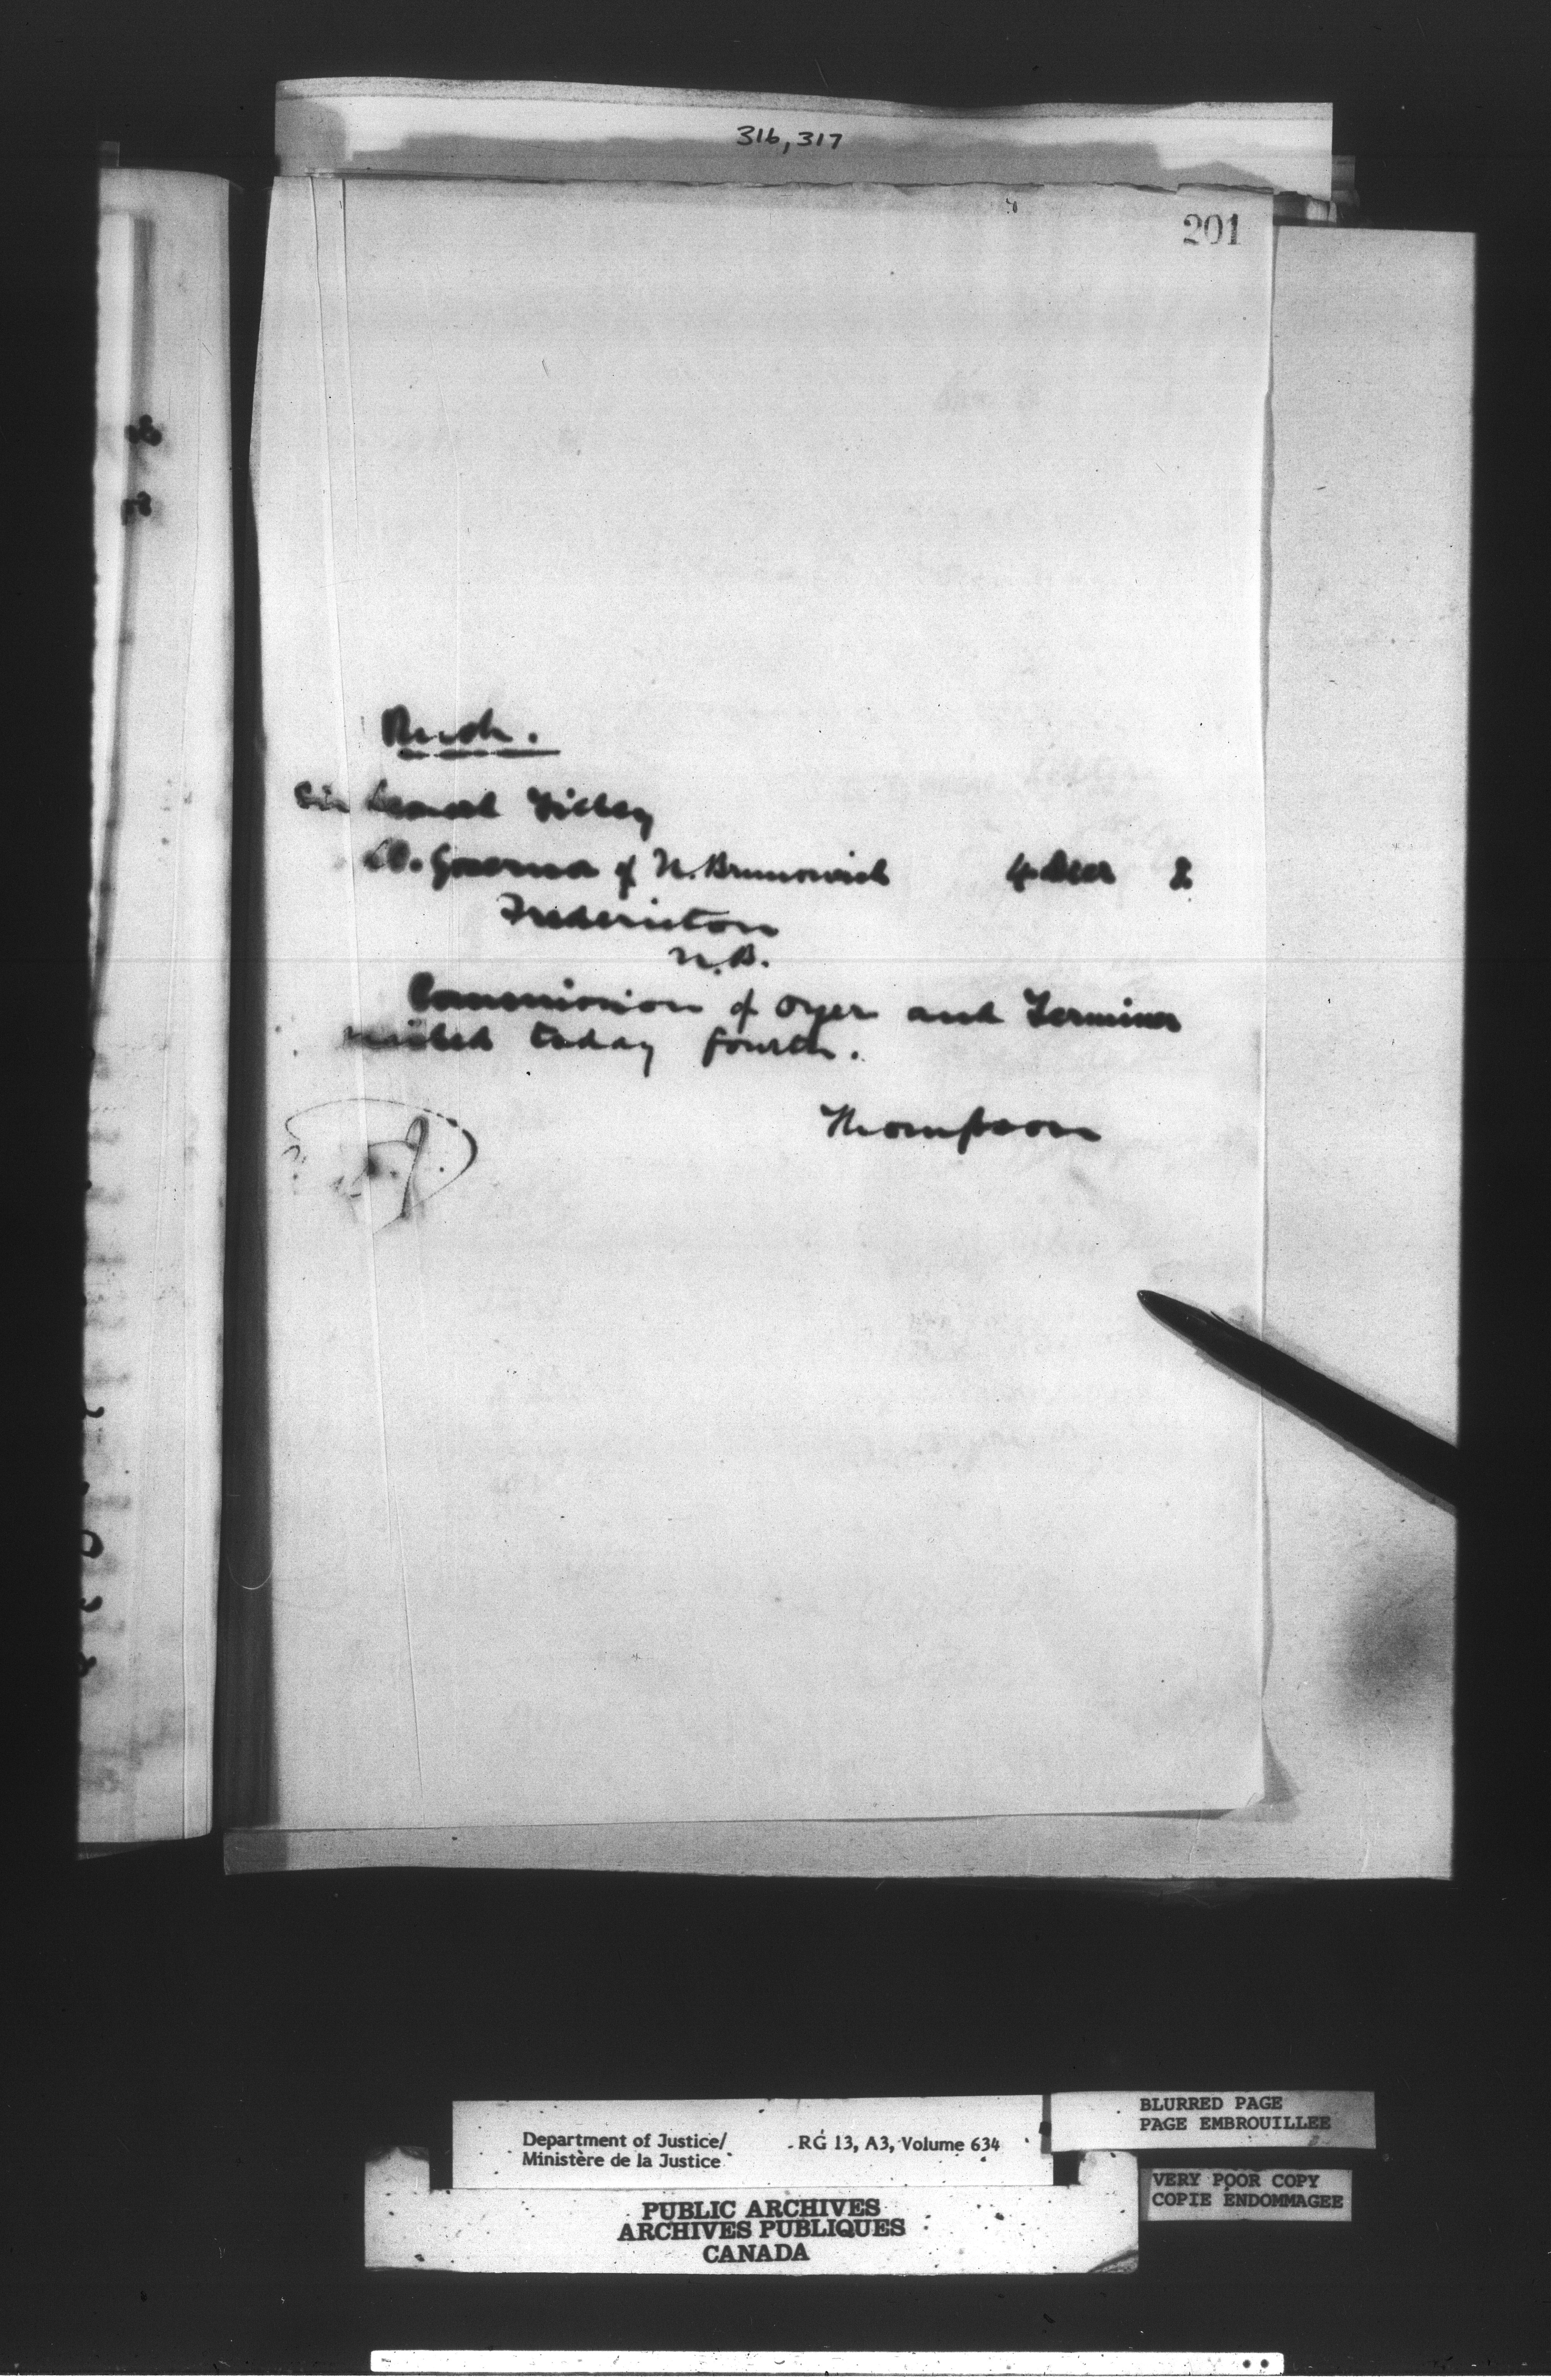 316, 317
201
Rush.
Sir Leonard Tilley
Lt. Governor of N. Brunswick 4 Decr
Fredericton
N.B.
Commission of Oyer and Terminer
mailed today fourth.
Thompson
BLURRED PAGE
PAGE EMBROUILLEE
Department of Justice/ RG 13, A3, Volume 634
Ministère de la Justice
VERY POOR COPY
COPIE ENDOMMAGEE
PUBLIC ARCHIVES
ARCHIVES PUBLIQUES
CANADA